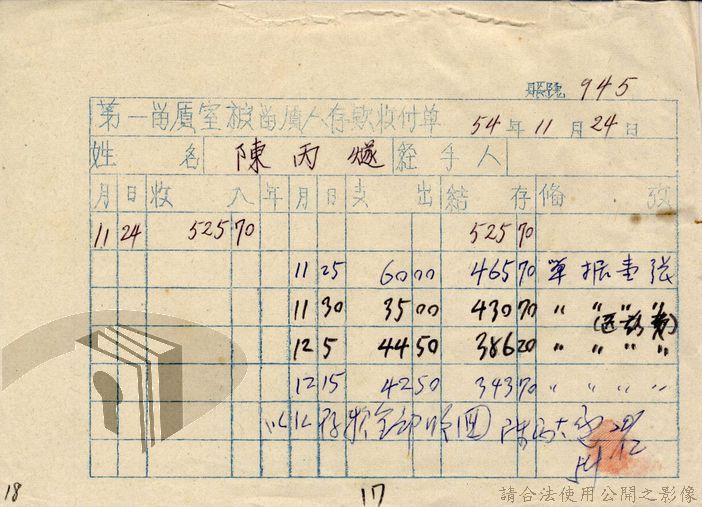 賬號 945
第一當值室被當值人存款收付單 54年11月24日
姓名 陳丙燧 經手人
月 日 收入 年 月 日 支出 結存 備考
11 24 525 70 525 70
11 25 60 00 465 70 單据壹張
11 30 35 00 430 70 〃 〃 〃 〃
12 5 44 50 386 20 〃 〃 〃 〃
12 15 42 50 343 70 〃 〃 〃 〃
以上存款全部領回 陳
54
18
17
請合法使用公開之影像